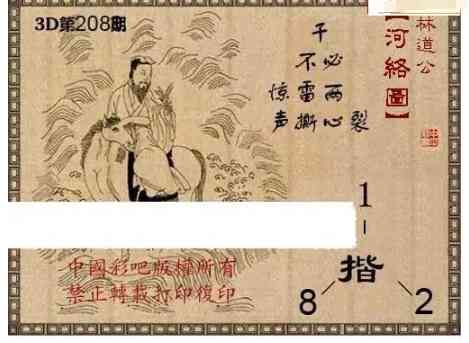 3D第208期
林道公
【河絡圖】
千
不必
惊雷兩
声撕心裂
1
揩
8 2
中國彩吧版權所有
禁止轉載打印復印